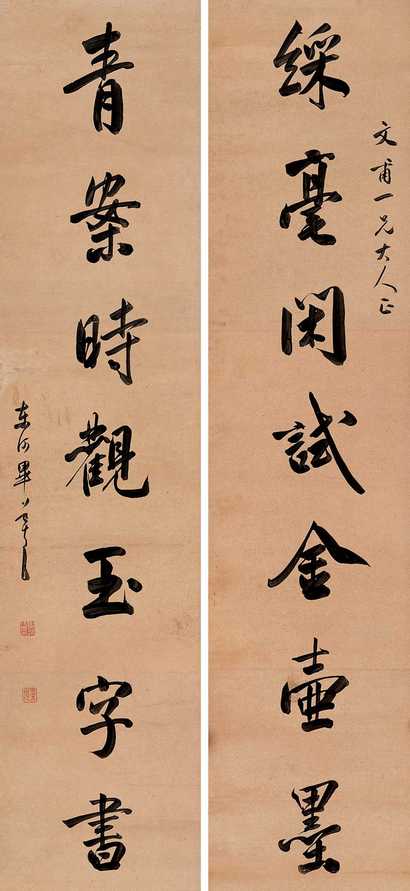 文甫一兄大人正
綵毫閑試金壺墨
青案時觀玉字書
東河畢